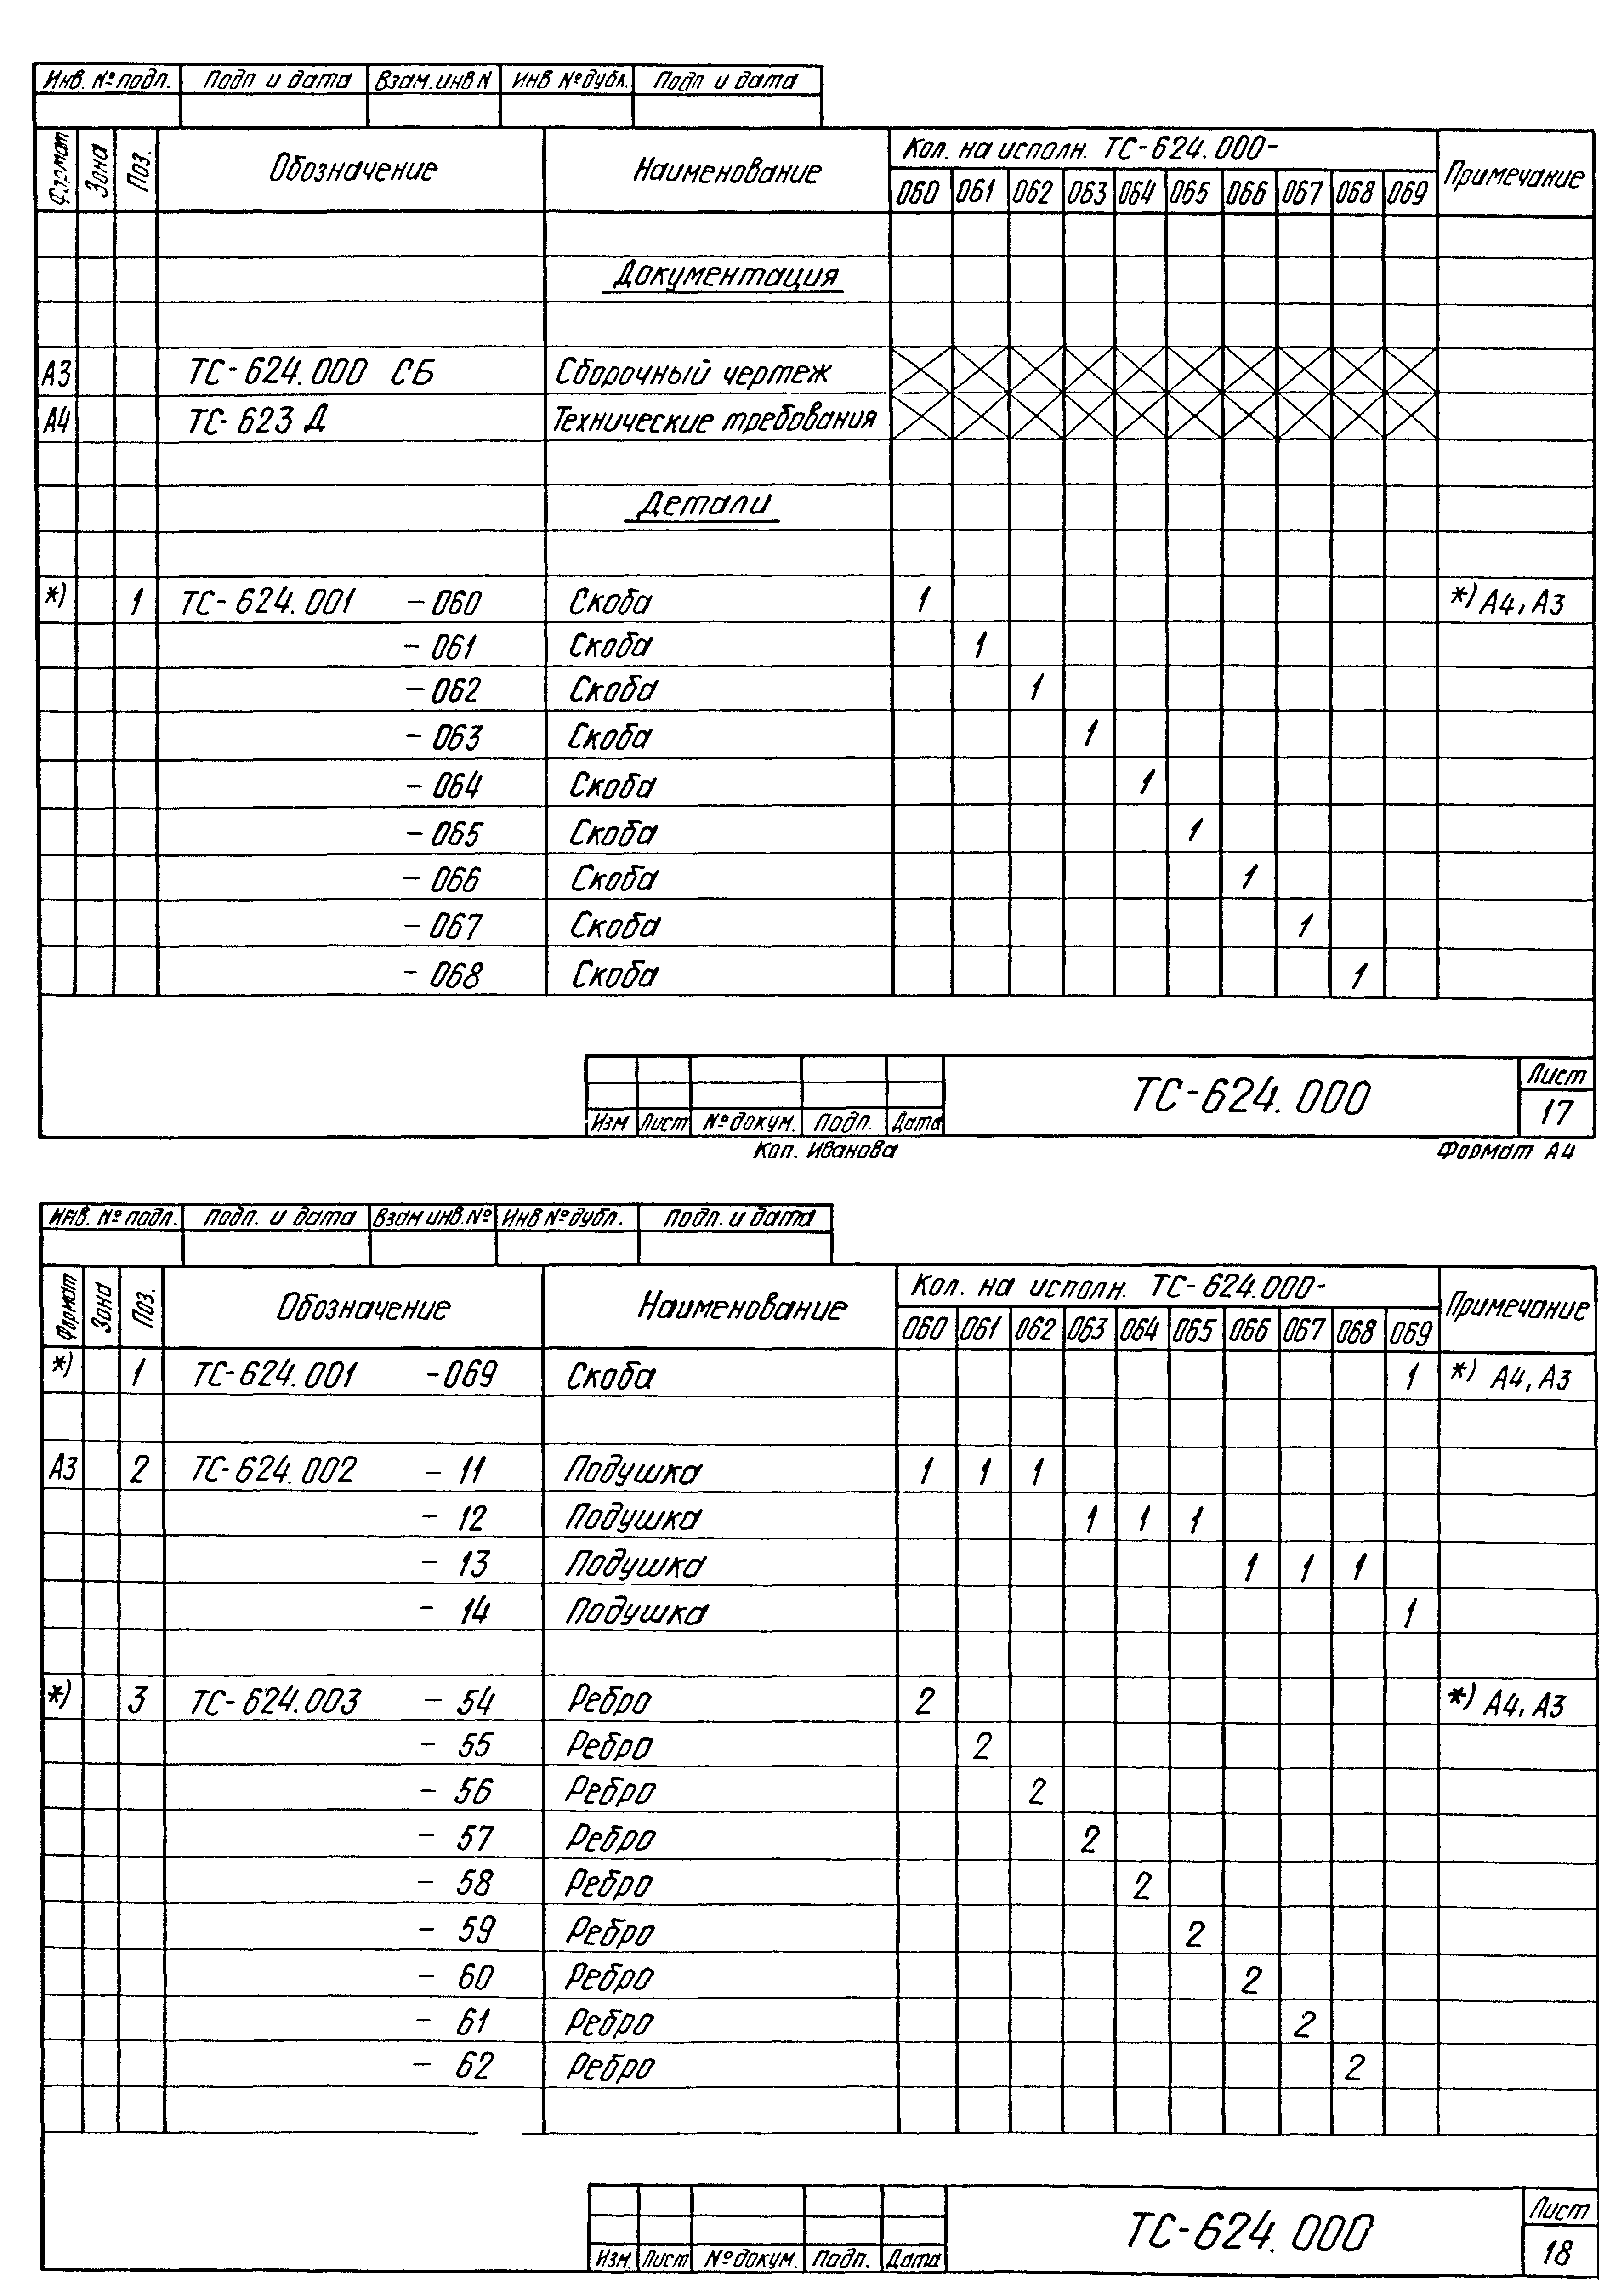 Инв. № подл. Подп и дата Взам. инв N Инв № дубл. Подп и дата
Формат Зона Поз. Обозначение Наименование Кол. на исполн. ТС-624.000- Примечание
060 061 062 063 064 065 066 067 068 069
Документация
А3 ТС-624.000 СБ Сборочный чертеж
А4 ТС-623 Д Технические требования
Детали
*) 1 ТС-624.001 -060 Скоба 1 *) А4, А3
-061 Скоба 1
-062 Скоба 1
-063 Скоба 1
-064 Скоба 1
-065 Скоба 1
-066 Скоба 1
-067 Скоба 1
-068 Скоба 1
Изм Лист № докум. Подп. Дата ТС-624.000 Лист 17
Коп. Иванова Формат А4
Инв. № подл. Подп. и дата Взам инв. № Инв № дубл. Подп. и дата
Формат Зона Поз. Обозначение Наименование Кол. на исполн. ТС-624.000- Примечание
060 061 062 063 064 065 066 067 068 069
*) 1 ТС-624.001 -069 Скоба 1 *) А4, А3
А3 2 ТС-624.002 - 11 Подушка 1 1 1
- 12 Подушка 1 1 1
- 13 Подушка 1 1 1
- 14 Подушка 1
*) 3 ТС-624.003 - 54 Ребро 2 *) А4, А3
- 55 Ребро 2
- 56 Ребро 2
- 57 Ребро 2
- 58 Ребро 2
- 59 Ребро 2
- 60 Ребро 2
- 61 Ребро 2
- 62 Ребро 2
Изм. Лист № докум. Подп. Дата ТС-624.000 Лист 18